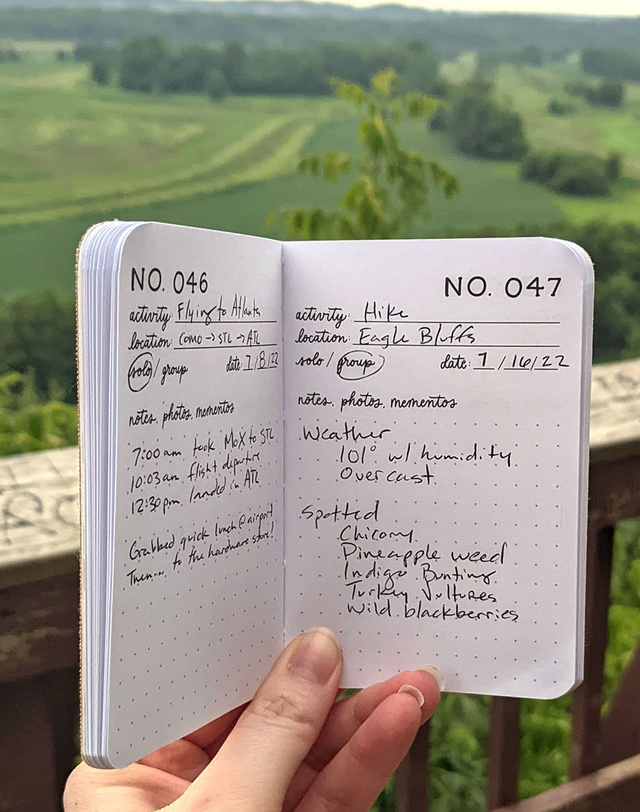 NO. 046
activity: Flying to Atlanta
location: COMO → STL → ATL
solo / group date: 7/8/22
notes, photos, mementos
7:00 am took MoX to STL
10:03 am flight departure
12:30 pm landed in ATL
Grabbed quick lunch @ airport
Then.... to the hardware store!
NO. 047
activity: Hike
location: Eagle Bluffs
solo / group date: 7/16/22
notes, photos, mementos
Weather
101° w/ humidity
Overcast
Spotted
Chicory
Pineapple weed
Indigo Bunting
Turkey Vultures
Wild blackberries